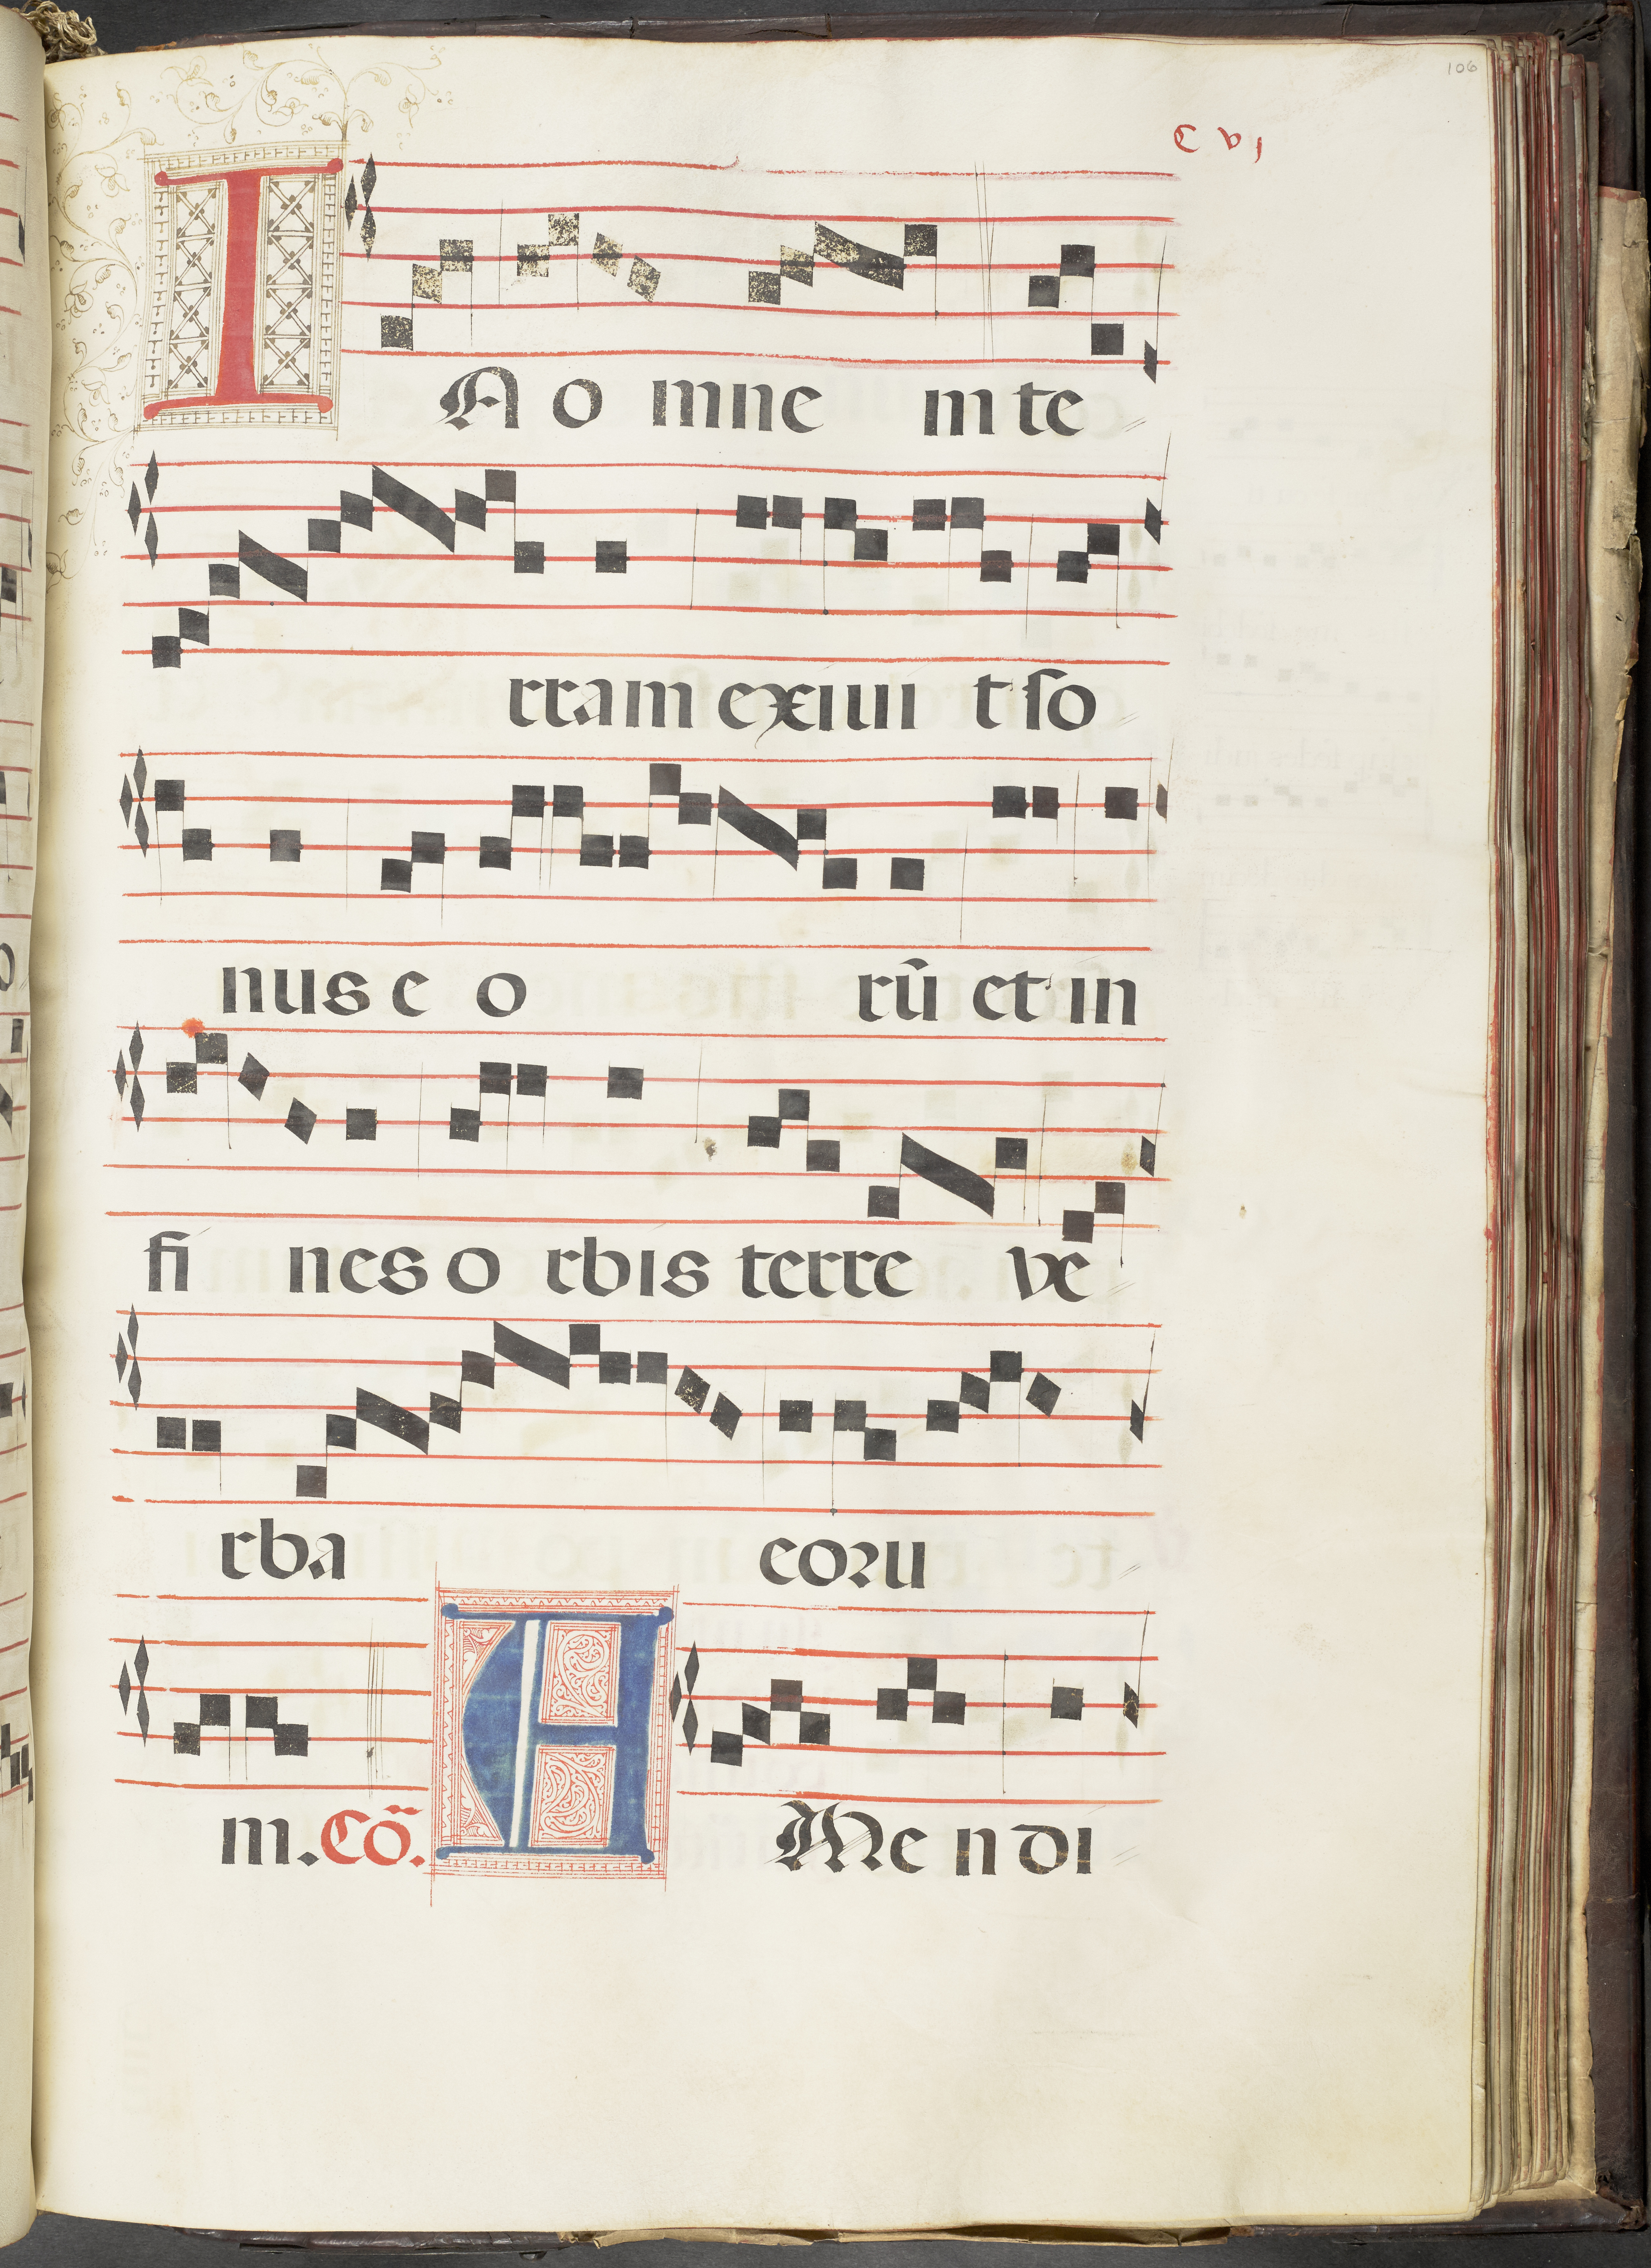 106
C vı
I
A o mne m te
rram exiui t so
nus e o rū et in
fi nes o rbis terre ve
rba eoru
m. Cō. A
Me n di